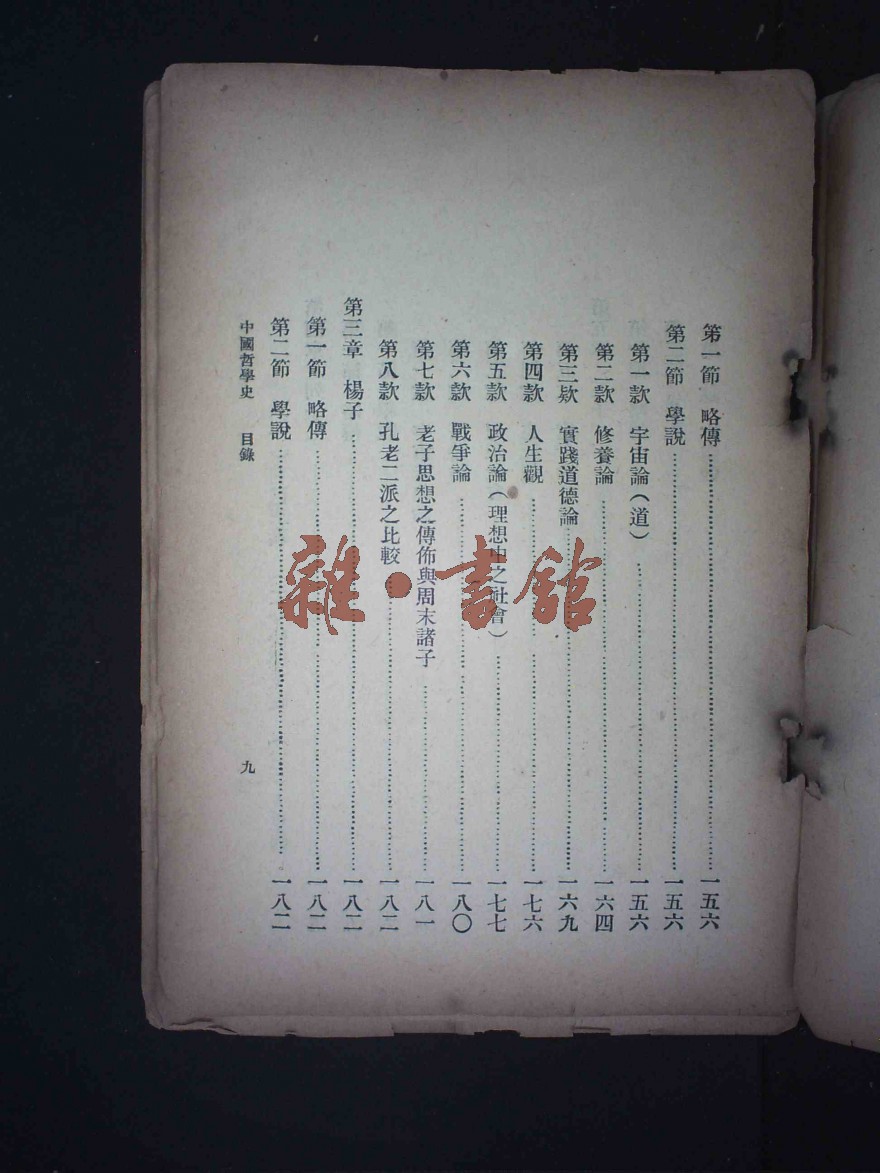 第一節　略傳……一五六
第二節　學說……一五六
第一款　宇宙論（道）……一五六
第二款　修養論……一六四
第三款　實踐道德論……一六九
第四款　人生觀……一七六
第五款　政治論（理想中之社會）……一七七
第六款　戰爭論……一八〇
第七款　老子思想之傳佈與周末諸子……一八一
第八款　孔老二派之比較……一八二
第三章　楊子……一八二
第一節　略傳……一八二
第二節　學說……一八二
中國哲學史　目錄　九
雜·書館